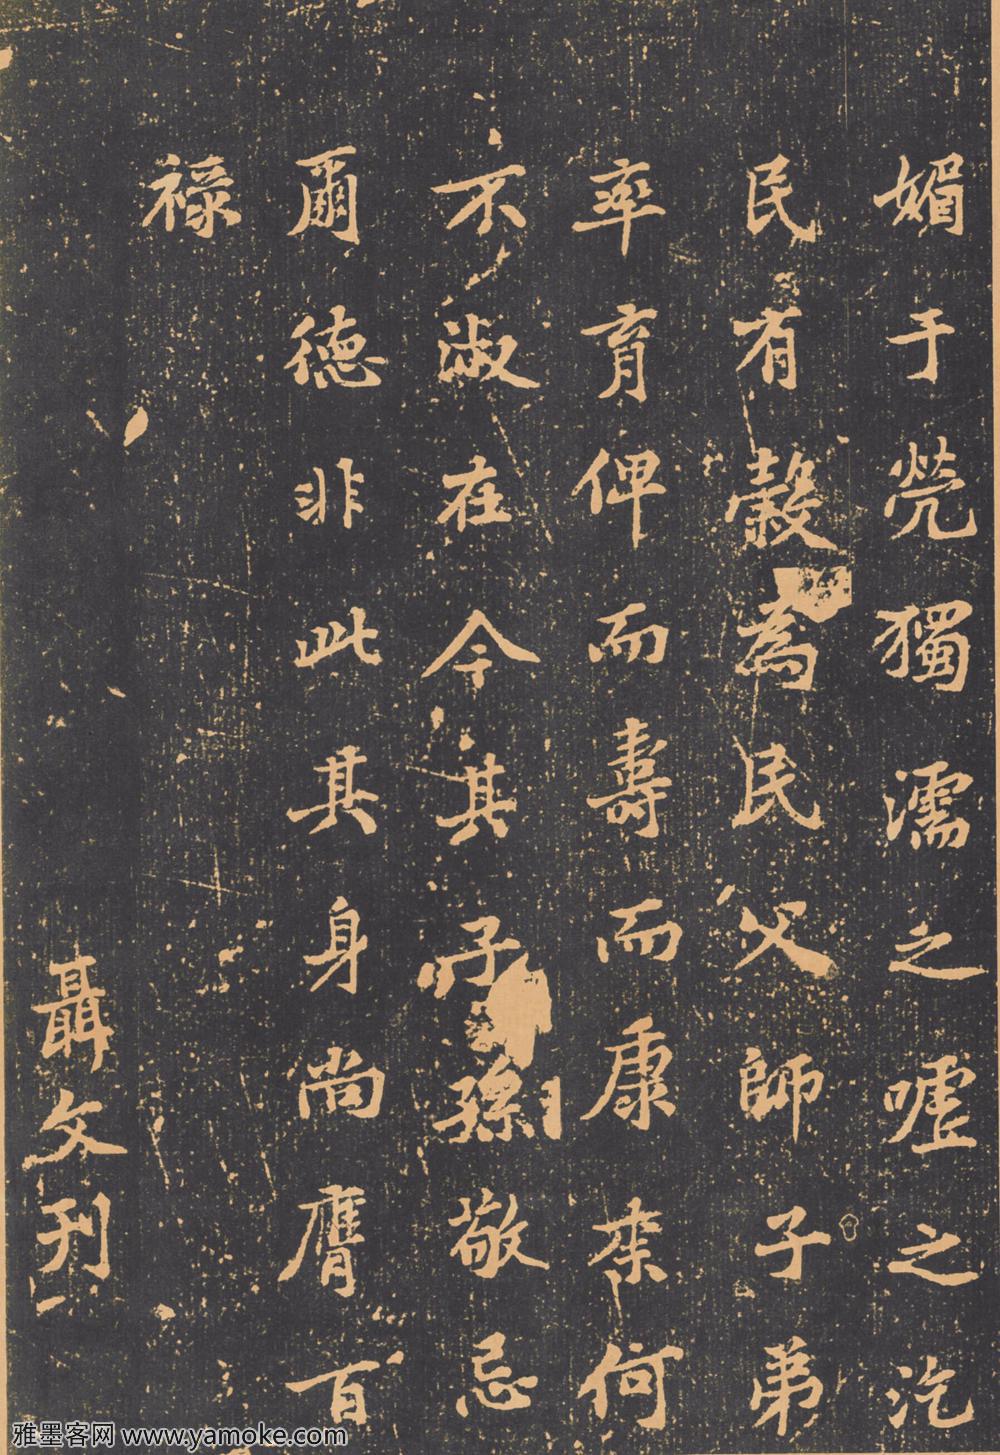 媚于煢獨濡之噓之汔
民有穀為民父師子弟
率育俾而壽而康柰何
不淑在今其子孫敬忌
爾德非此其身尚膺百
祿
聶文刊
雅墨客网 www.yamoke.com